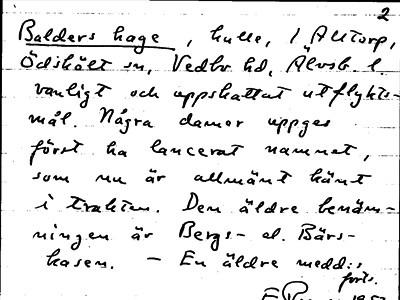 2
Balders hage, kulle, i Alltorp,
Ödskölt sn, Vedbo hd, Älvsb. l.
vanligt och uppskattat utflykts-
mål. Några damer uppges
först ha lancerat namnet,
som nu är allmänt känt
i trakten. Den äldre benäm-
ningen är Bergs- el. Bärs-
kasen. — En äldre medd:s
forts.